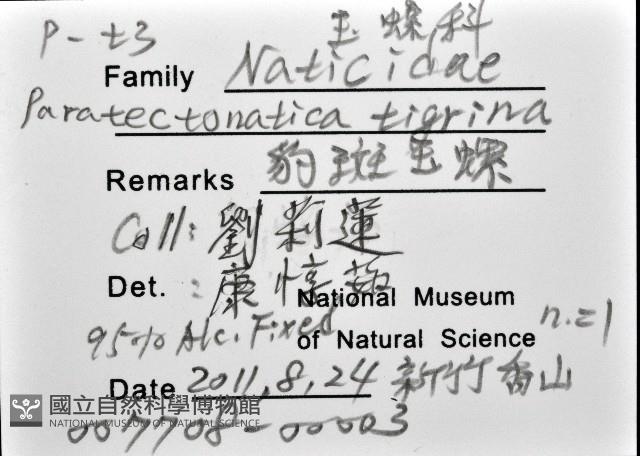 P-t3 玉螺科
Family Naticidae
Paratectonatica tigrina
Remarks 豹斑玉螺
Coll: 劉莉蓮
Det. : 康惇
National Museum
95% Alc. Fixed of Natural Science n.=1
Date 2011,8,24 新竹香山
國立自然科學博物館
NATIONAL MUSEUM OF NATURAL SCIENCE